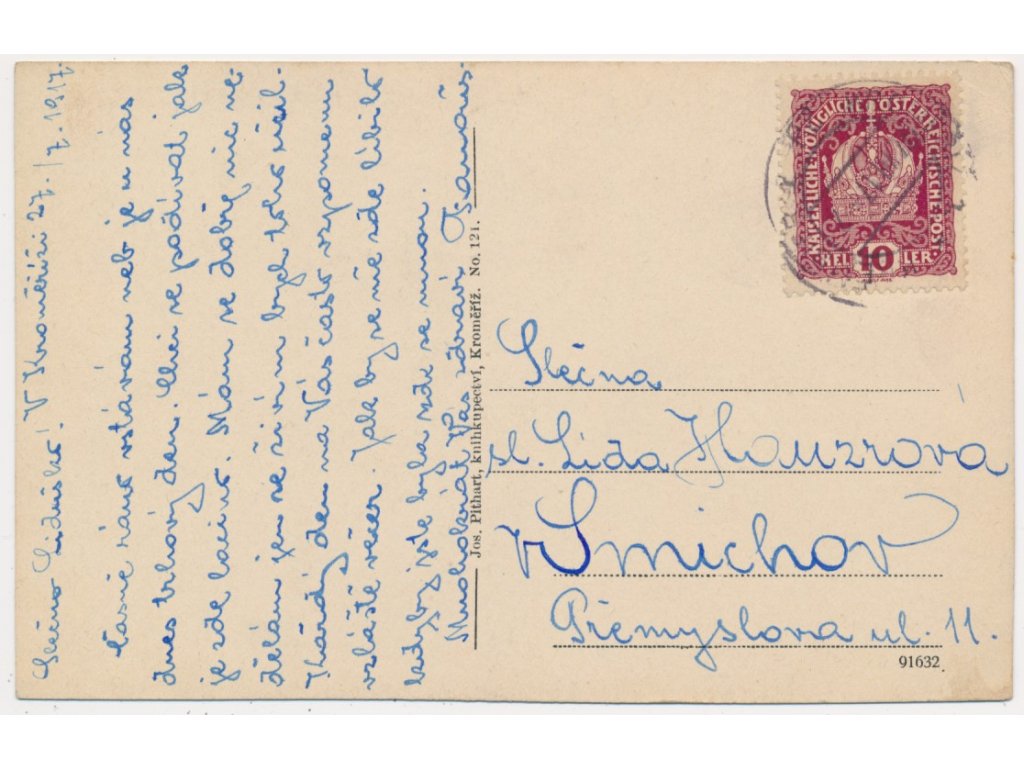 Slečno Lidunko! V Kroměříži 27./7. 1917.
Časně ráno vstávám neb je u nás
dnes trhový den. Chci se podívat jak
je zde lacino. Mám se dobře nic ne-
dělám jen se živím bych toho užil.
Každý den na Vás často vzpomenu
vzláště večer. Jak by se mě zde líbilo
kdyby jste byla zde se mnou.
Mnohokrát Vás zdraví
Jos. Pithart, knihkupectví, Kroměříž. No. 121.
KAISERLICHE KÖNIGLICHE ÖSTERREICHISCHE POST
HELLER
10
Slečna
sl. Lída Hauzrová
v Smichov
Přemyslova ul. 11.
91632